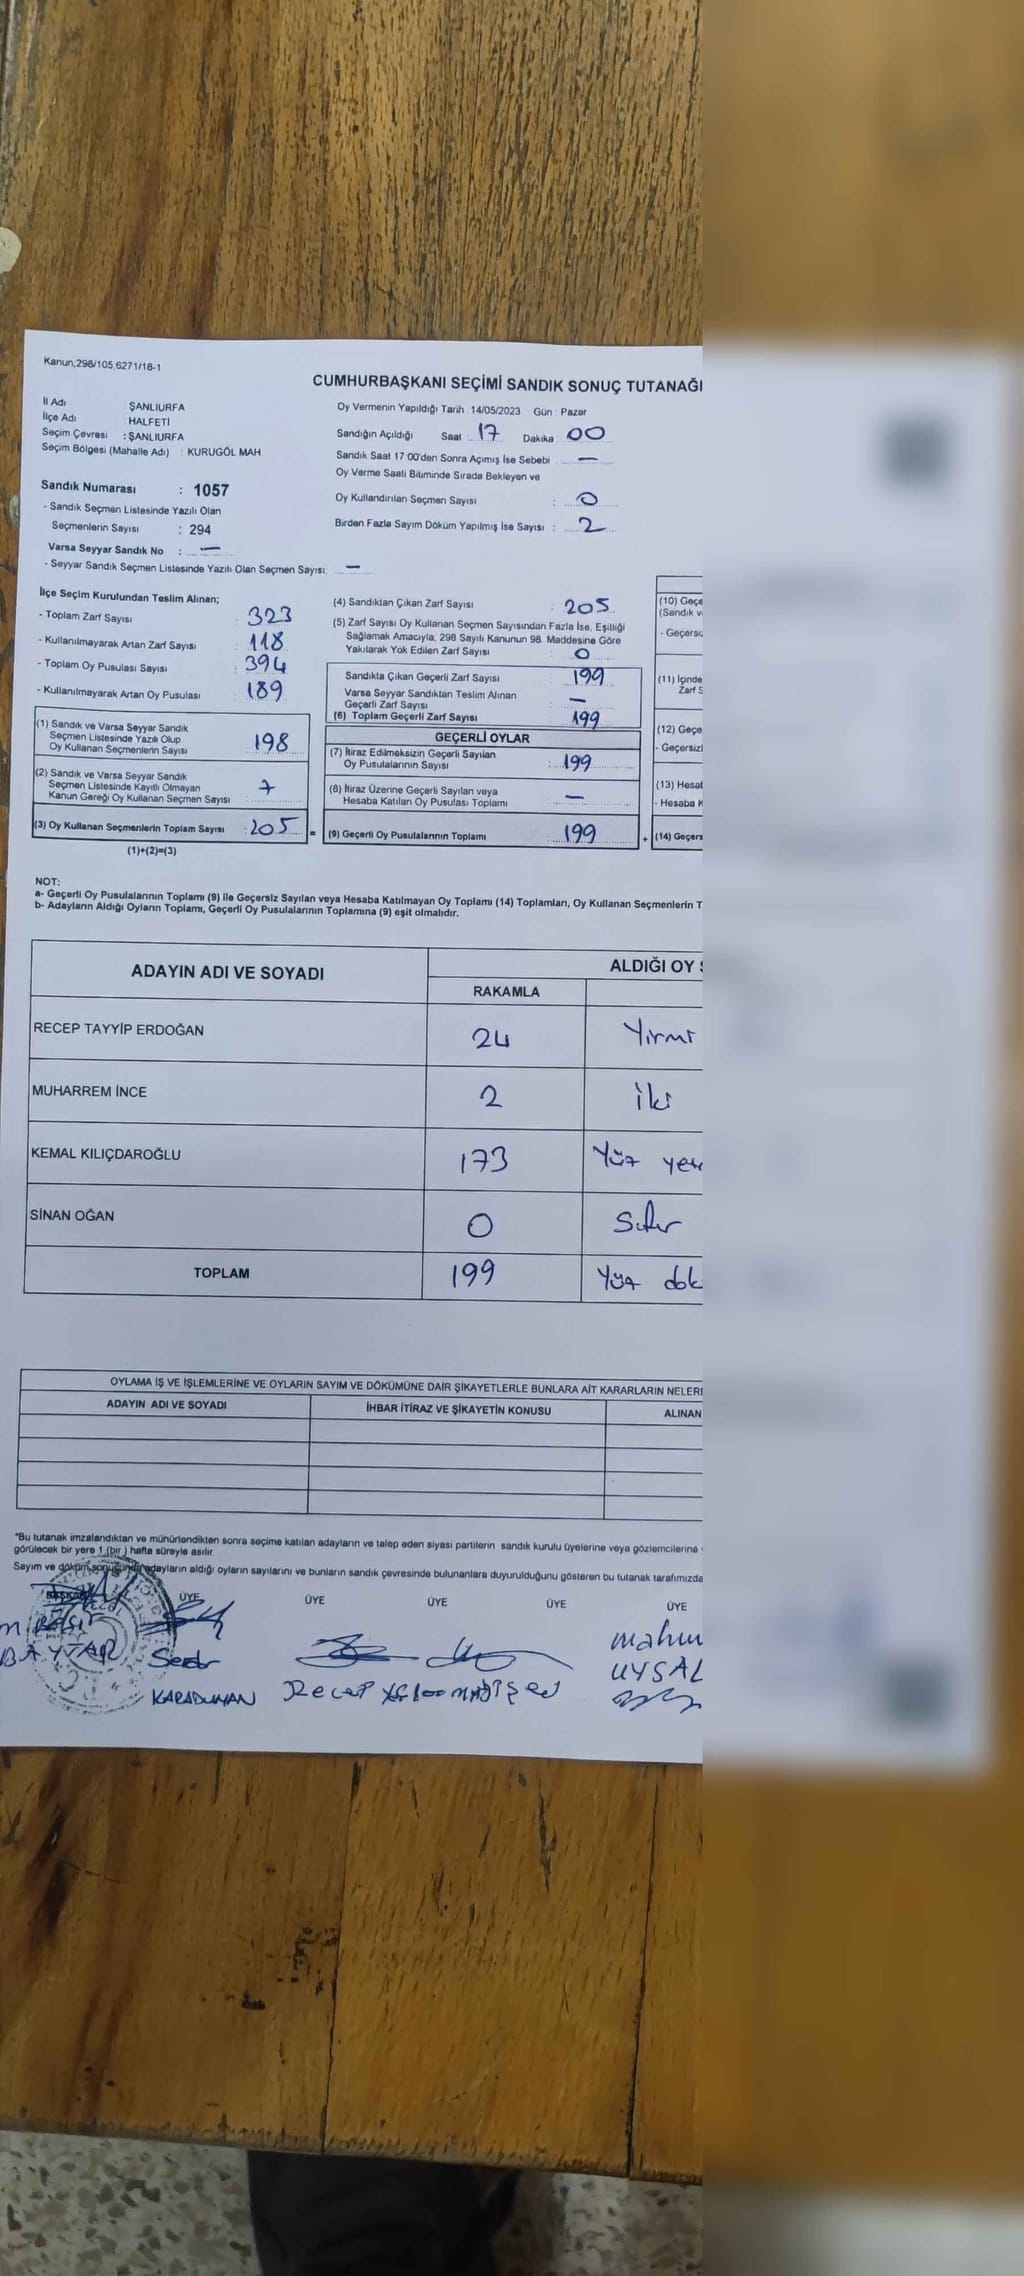 Kanun,298/105,6271/18-1
CUMHURBAŞKANI SEÇİMİ SANDIK SONUÇ TUTANAĞI
İl Adı : ŞANLIURFA
İlçe Adı : HALFETİ
Seçim Çevresi : ŞANLIURFA
Seçim Bölgesi (Mahalle Adı) : KURUGÖL MAH.
Oy Vermenin Yapıldığı Tarih : 14/05/2023 Gün : Pazar
Sandığın Açıldığı Saat 17 Dakika 00
Sandık Saat 17 00'den Sonra Açımış İse Sebebi —
Oy Verme Saati Bitiminde Sırada Bekleyen ve
Oy Kullandırılan Seçmen Sayısı : 0
Birden Fazla Sayım Döküm Yapılmış İse Sayısı : 2
Sandık Numarası : 1057
- Sandık Seçmen Listesinde Yazılı Olan
Seçmenlerin Sayısı : 294
Varsa Seyyar Sandık No : —
- Seyyar Sandık Seçmen Listesinde Yazılı Olan Seçmen Sayısı: —
İlçe Seçim Kurulundan Teslim Alınan;
- Toplam Zarf Sayısı : 323
- Kullanılmayarak Artan Zarf Sayısı : 118
- Toplam Oy Pusulası Sayısı : 394
- Kullanılmayarak Artan Oy Pusulası : 189
(1) Sandık ve Varsa Seyyar Sandık
Seçmen Listesinde Yazılı Olup
Oy Kullanan Seçmenlerin Sayısı 198
(2) Sandık ve Varsa Seyyar Sandık
Seçmen Listesinde Kayıtlı Olmayan
Kanun Gereği Oy Kullanan Seçmen Sayısı 7
(3) Oy Kullanan Seçmenlerin Toplam Sayısı : 205 =
(1)+(2)=(3)
(4) Sandıktan Çıkan Zarf Sayısı : 205
(5) Zarf Sayısı Oy Kullanan Seçmen Sayısından Fazla İse, Eşitliği
Sağlamak Amacıyla, 298 Sayılı Kanunun 98. Maddesine Göre
Yakılarak Yok Edilen Zarf Sayısı : 0
Sandıkta Çıkan Geçerli Zarf Sayısı : 199
Varsa Seyyar Sandıktan Teslim Alınan
Geçerli Zarf Sayısı : —
(6) Toplam Geçerli Zarf Sayısı : 199
GEÇERLİ OYLAR
(7) İtiraz Edilmeksizin Geçerli Sayılan
Oy Pusulalarının Sayısı : 199
(8) İtiraz Üzerine Geçerli Sayılan veya
Hesaba Katılan Oy Pusulası Toplamı : —
(9) Geçerli Oy Pusulalarının Toplamı : 199 +
(10) Geçe
(Sandık v
- Geçersiz
(11) İçinde
Zarf S
(12) Geçe
- Geçersizl
(13) Hesab
- Hesaba K
(14) Geçers
NOT:
a- Geçerli Oy Pusulalarının Toplamı (9) ile Geçersiz Sayılan veya Hesaba Katılmayan Oy Toplamı (14) Toplamları, Oy Kullanan Seçmenlerin T
b- Adayların Aldığı Oyların Toplamı, Geçerli Oy Pusulalarının Toplamına (9) eşit olmalıdır.
ADAYIN ADI VE SOYADI ALDIĞI OY S
RAKAMLA
RECEP TAYYİP ERDOĞAN 24 Yirmi
MUHARREM İNCE 2 iki
KEMAL KILIÇDAROĞLU 173 Yüz yet
SİNAN OĞAN 0 Sıfır
TOPLAM 199 Yüz dok
OYLAMA İŞ VE İŞLEMLERİNE VE OYLARIN SAYIM VE DÖKÜMÜNE DAİR ŞİKAYETLERLE BUNLARA AİT KARARLARIN NELERİ
ADAYIN ADI VE SOYADI İHBAR İTİRAZ VE ŞİKAYETİN KONUSU ALINAN
*Bu tutanak imzalandıktan ve mühürlendikten sonra seçime katılan adayların ve talep eden siyasi partilerin sandık kurulu üyelerine veya gözlemcilerine
görülecek bir yere 1 (bir ) hafta süreyle asılır.
Sayım ve döküm sonucunda adayların aldığı oyların sayılarını ve bunların sandık çevresinde bulunanlara duyurulduğunu gösteren bu tutanak tarafımızda
BAŞKAN ÜYE ÜYE ÜYE ÜYE ÜYE
BAYTAR
KARADUMAN
Recep
Mahmu
UYSAL